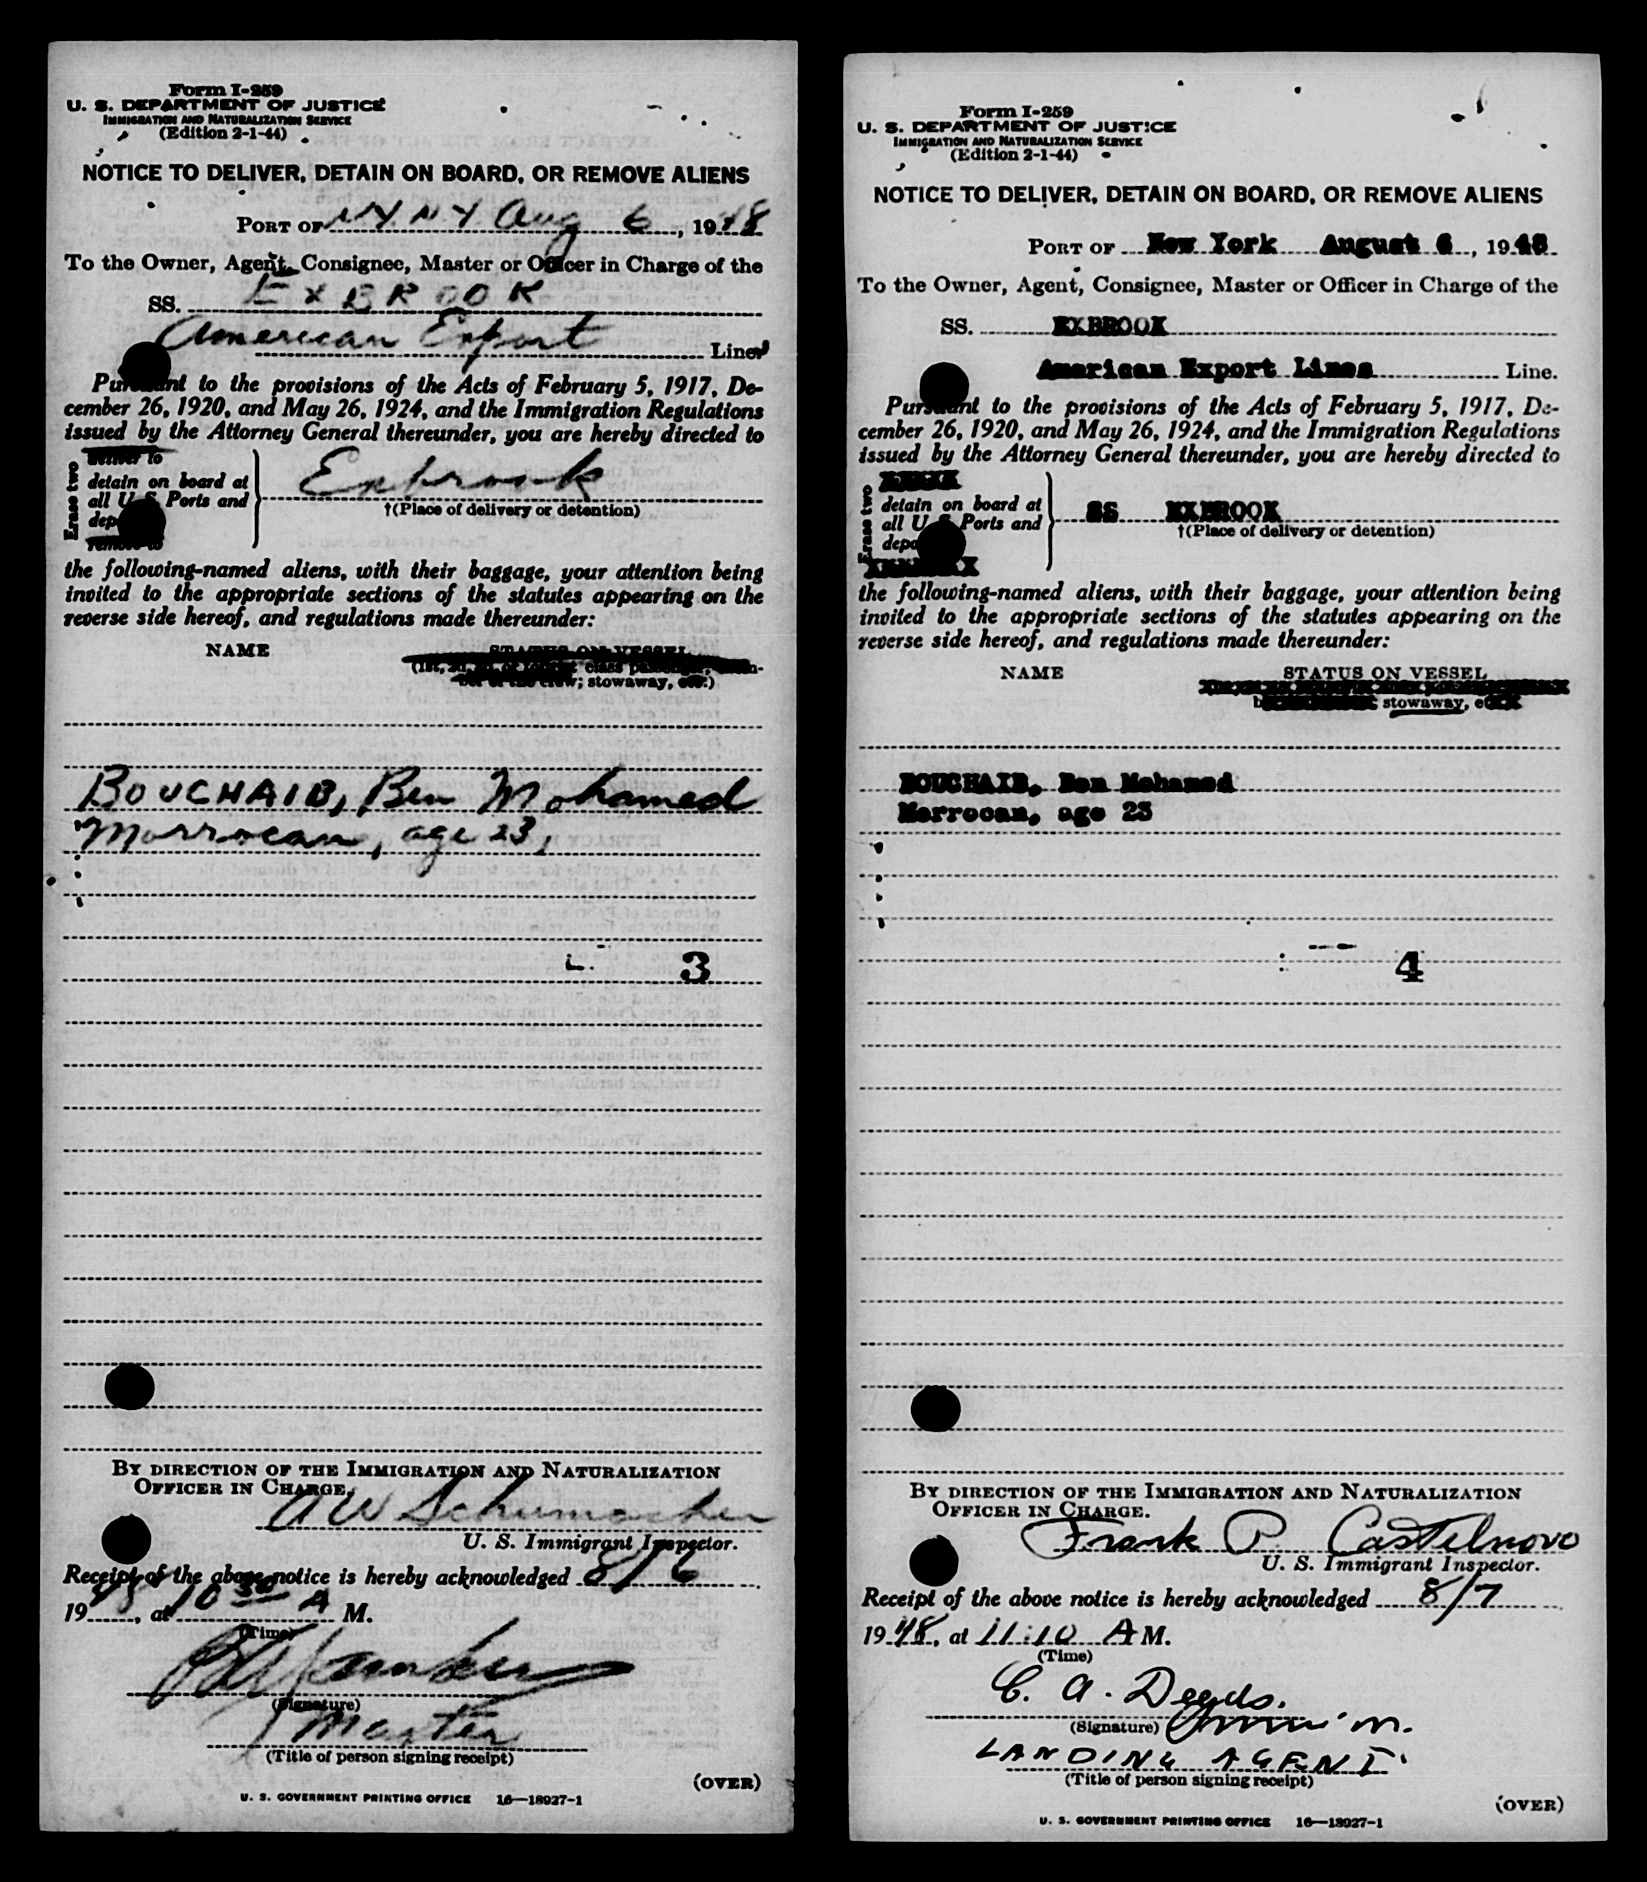 Form I-259
U. S. DEPARTMENT OF JUSTICE
IMMIGRATION AND NATURALIZATION SERVICE
(Edition 2-1-44)
NOTICE TO DELIVER, DETAIN ON BOARD, OR REMOVE ALIENS
PORT OF NY NY Aug 6, 1948
To the Owner, Agent, Consignee, Master or Officer in Charge of the
SS. EXBROOK
American Export Line
Pursuant to the provisions of the Acts of February 5, 1917, De-
cember 26, 1920, and May 26, 1924, and the Immigration Regulations
issued by the Attorney General thereunder, you are hereby directed to
Erase two
deliver to
detain on board at
all U. S. Ports and
remove to
Exbrook
†(Place of delivery or detention)
the following-named aliens, with their baggage, your attention being
invited to the appropriate sections of the statutes appearing on the
reverse side hereof, and regulations made thereunder:
NAME STATUS ON VESSEL
(1st, 2d, 3d, or tourist class passenger, mem-
ber of the crew; stowaway, etc.)
BOUCHAIB, Ben Mohamed
Morrocan, age 23,
3
BY DIRECTION OF THE IMMIGRATION AND NATURALIZATION
OFFICER IN CHARGE.
A W Schumacher
U. S. Immigrant Inspector.
Receipt of the above notice is hereby acknowledged 8/6
1948, at 10 30 A M.
(Time)
(Signature)
Master
(Title of person signing receipt)
(OVER)
U. S. GOVERNMENT PRINTING OFFICE 16—18927-1
Form I-259
U. S. DEPARTMENT OF JUSTICE
IMMIGRATION AND NATURALIZATION SERVICE
(Edition 2-1-44)
NOTICE TO DELIVER, DETAIN ON BOARD, OR REMOVE ALIENS
PORT OF New York August 6, 1948
To the Owner, Agent, Consignee, Master or Officer in Charge of the
SS. EXBROOK
American Export Lines Line.
Pursuant to the provisions of the Acts of February 5, 1917, De-
cember 26, 1920, and May 26, 1924, and the Immigration Regulations
issued by the Attorney General thereunder, you are hereby directed to
Erase two
detain on board at
all U. S. Ports and
SS EXBROOK
†(Place of delivery or detention)
the following-named aliens, with their baggage, your attention being
invited to the appropriate sections of the statutes appearing on the
reverse side hereof, and regulations made thereunder:
NAME STATUS ON VESSEL
stowaway,
BOUCHAIB, Ben Mohamed
Morrocan, age 23
4
BY DIRECTION OF THE IMMIGRATION AND NATURALIZATION
OFFICER IN CHARGE.
Frank P. Castelnovo
U. S. Immigrant Inspector.
Receipt of the above notice is hereby acknowledged 8/7
1948, at 11:10 A M.
(Time)
C. A. Deeds.
(Signature)
LANDING AGENT.
(Title of person signing receipt)
(OVER)
U. S. GOVERNMENT PRINTING OFFICE 16—18927-1